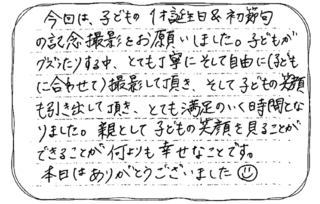 今回は、子どもの1才誕生日&初節句
の記念撮影をお願いしました。子どもが
グズったりする中、とても丁寧にそして自由に(子ども
に合わせて)撮影して頂き、そして子どもの笑顔
も引き出して頂き、とても満足のいく時間とな
りました。親として子どもの笑顔を見ることが
できることが何よりも幸せなことです。
本日はありがとうございました☺